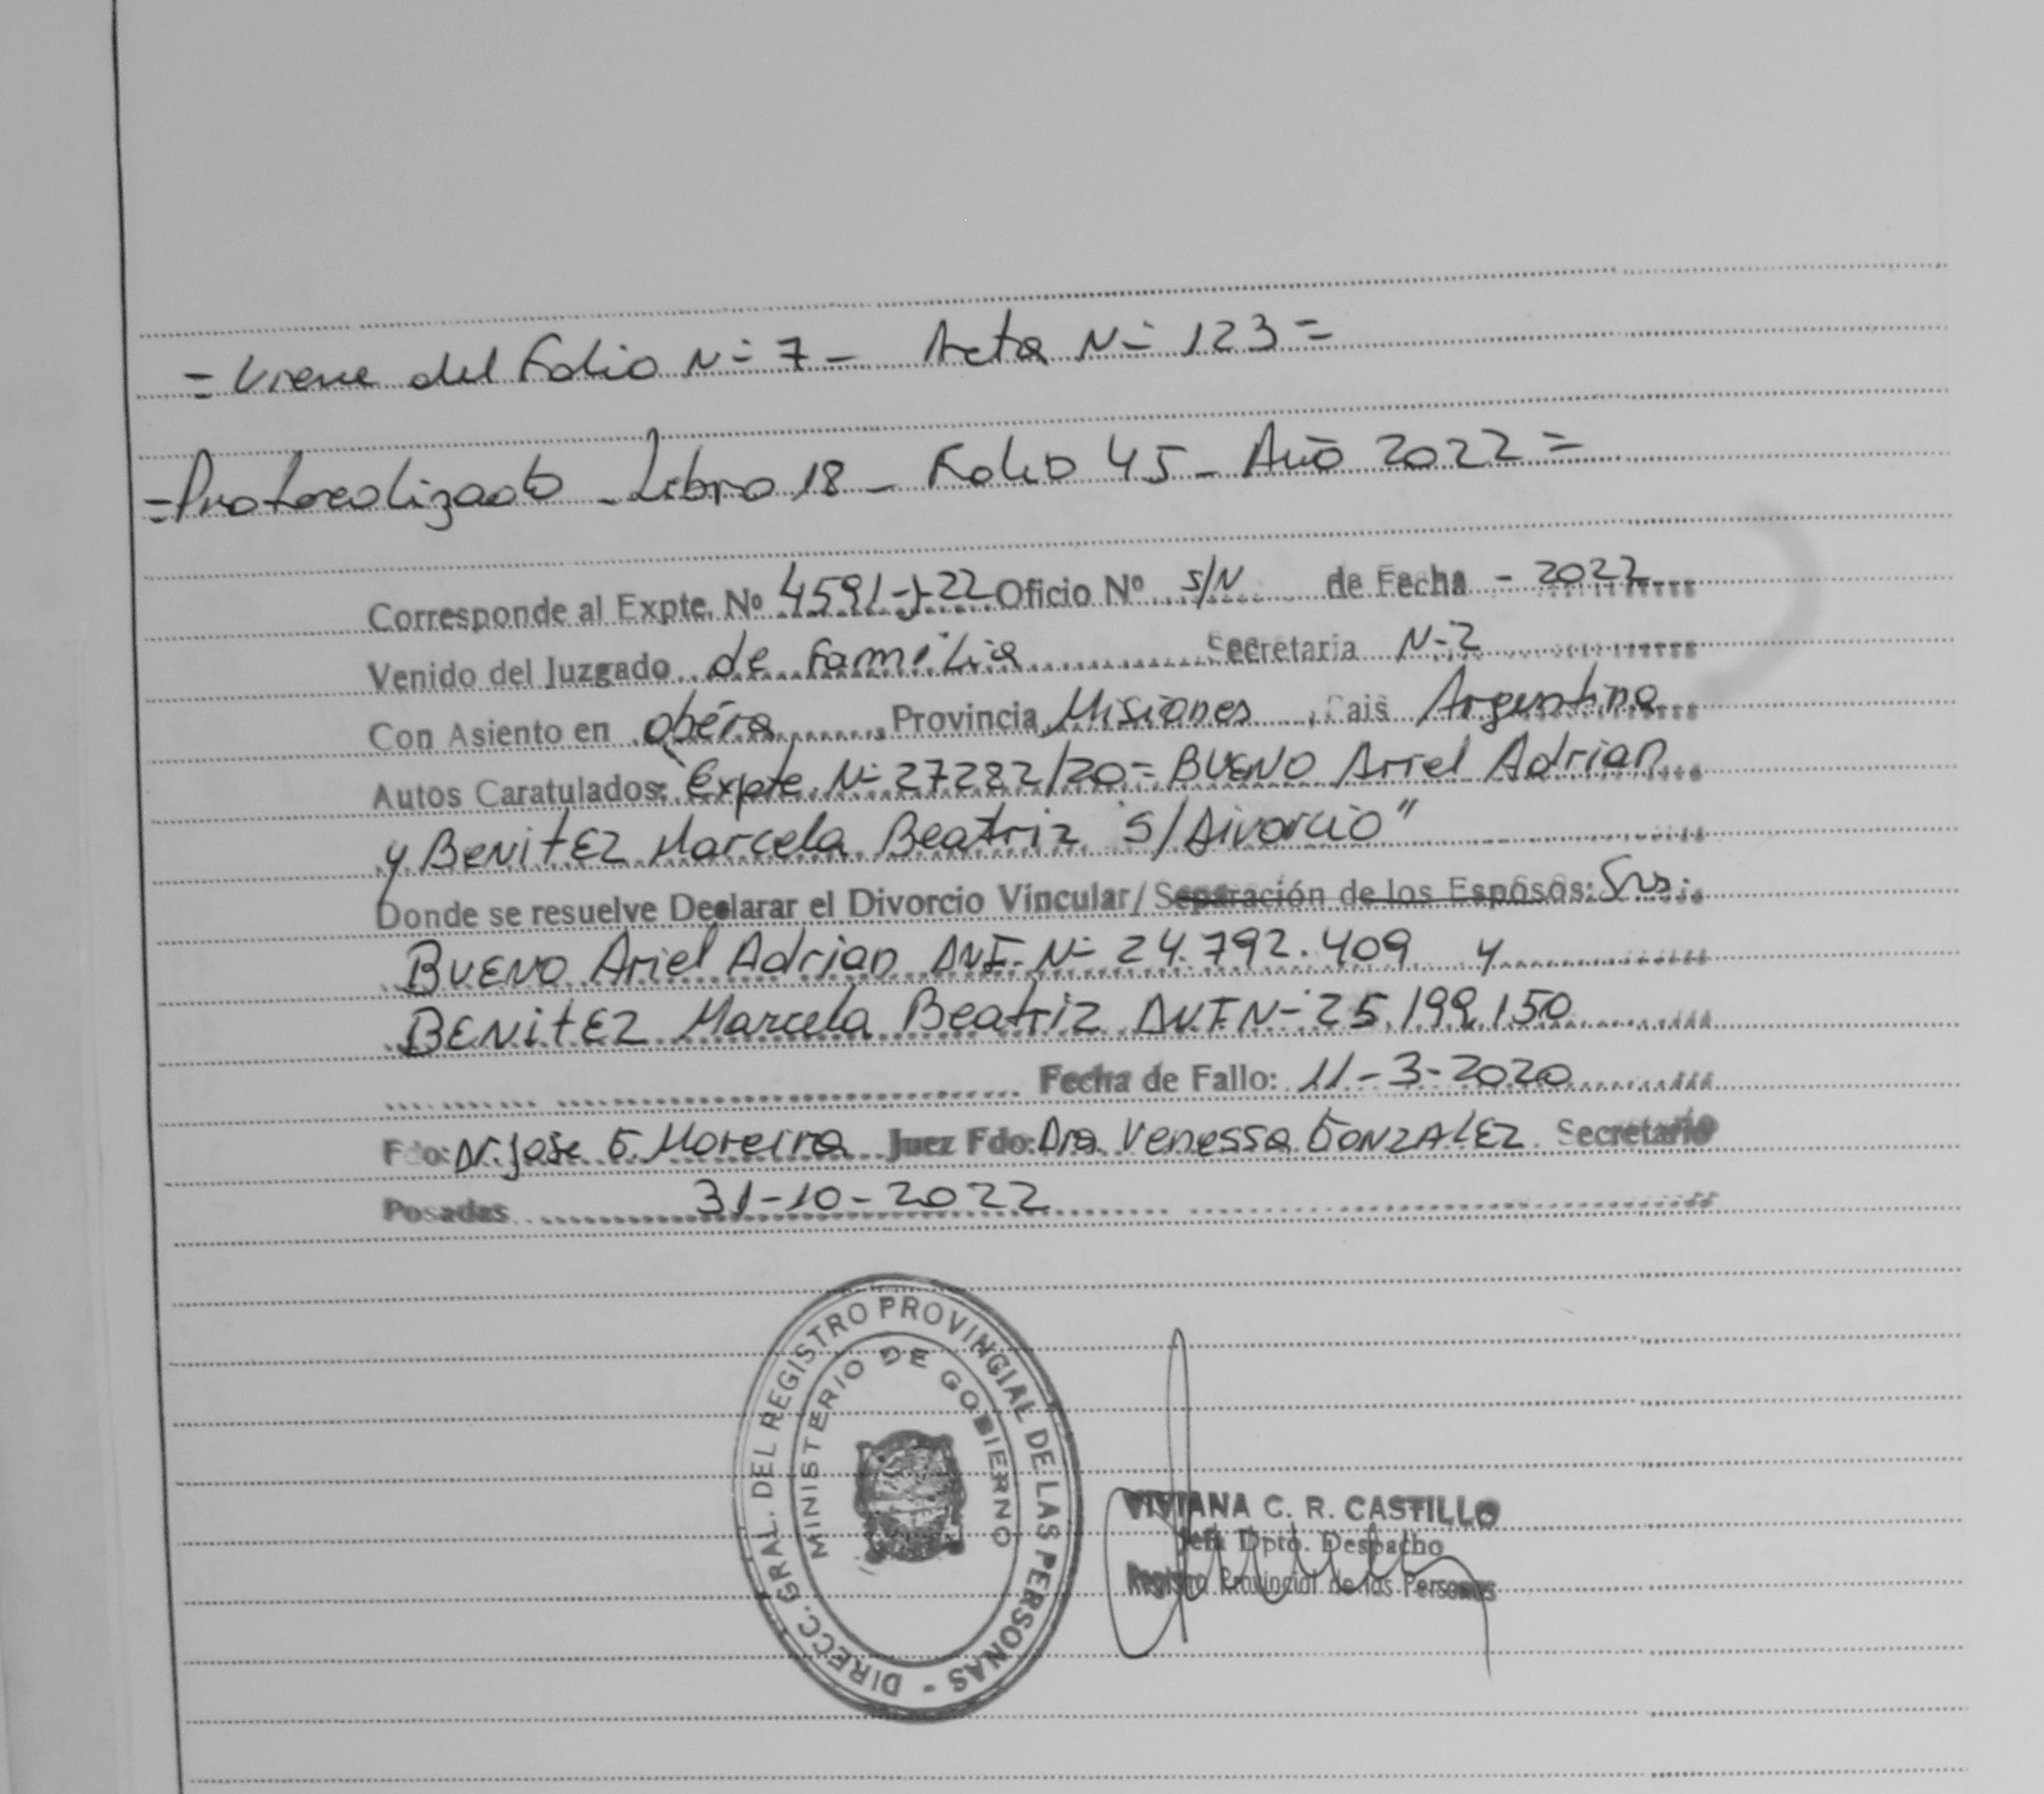 = Viene del Folio Nº 7 - Acta Nº 123 =
= Protocolizado - Libro 18 - Folio 45 - Año 2022 =
Corresponde al Expte. Nº 4591-J-22 Oficio Nº S/N de Fecha - 2022
Venido del Juzgado de Familia Secretaria Nº 2
Con Asiento en Oberá Provincia Misiones Pais Argentina
Autos Caratulados: "Expte. Nº 27282/20 = BUENO Ariel Adrian
y BENITEZ Marcela Beatriz S/Divorcio"
Donde se resuelve Declarar el Divorcio Vincular/Separación de los Esposos: Srs:
BUENO Ariel Adrian DNI. Nº 24.792.409 y
BENITEZ Marcela Beatriz DNI Nº 25.199.150
Fecha de Fallo: 11-3-2020
Fdo: Dr. Jose G. Moreira Juez Fdo: Dra Venessa GONZALEZ Secretario
Posadas 31-10-2022
DIRECC. GRAL. DEL REGISTRO PROVINCIAL DE LAS PERSONAS -
MINISTERIO DE GOBIERNO
VIVIANA C. R. CASTILLO
Jefa Dpto. Despacho
Registro Provincial de las Personas